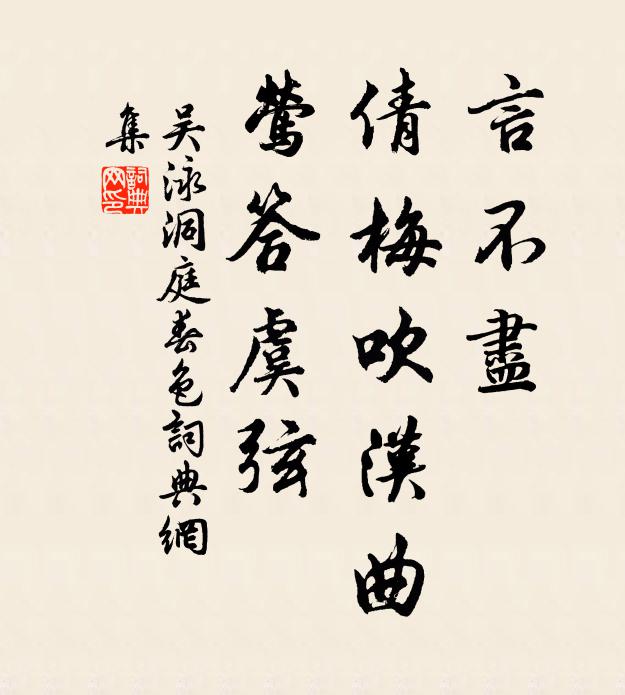 言不盡
倩梅吹漢曲
鶯答虞弦
吴泳洞庭春色詞典網
集
詞典
网印